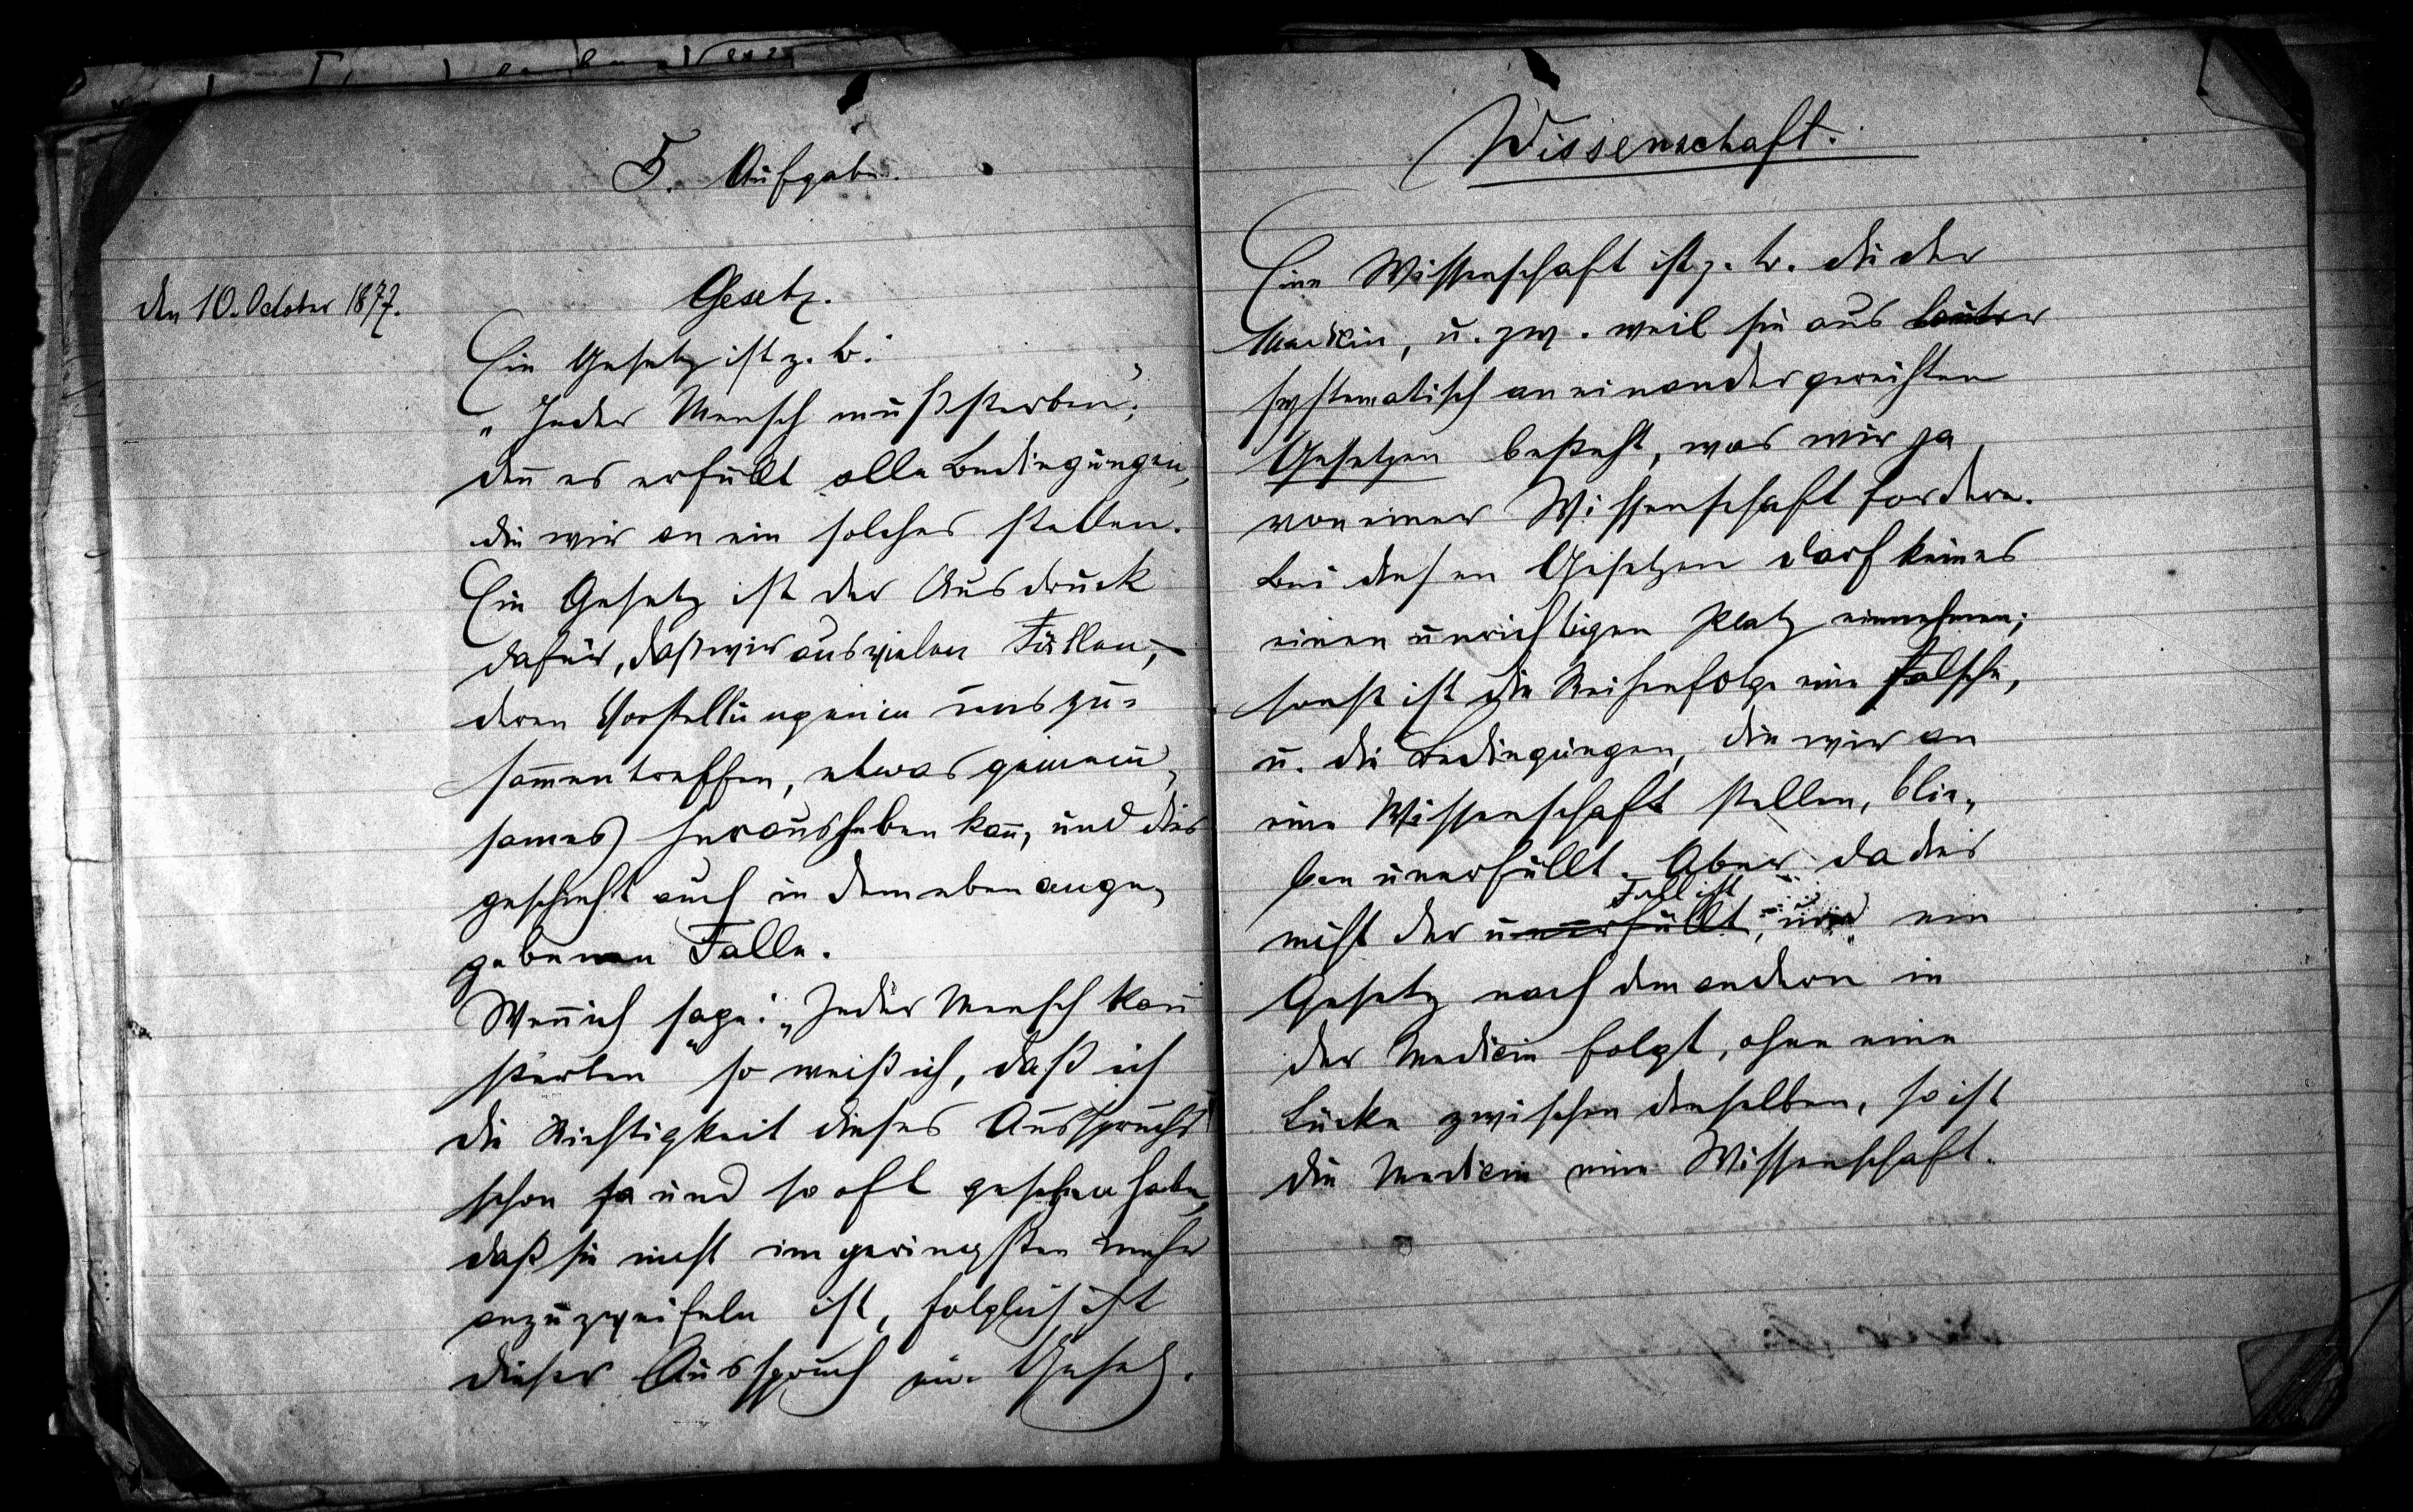 5. Aufgabe.
den 10. October 1877.
Gesetz.
Ein Gesetz ist z. B.:
„Jeder Mensch muß sterben“;
deñ es erfüllt alle Bedingungen,
die wir an ein solches stellen.
Ein Gesetz ist der Ausdruck
dafür, daß wir aus vielen Fällen,
deren Vorstellungen in uns zu=
sam̃entreffen, etwas gemein„
sames herausheben kañ, und dies
geschieht auch in dem eben ange„
gebenen Falle.
Weñ ich sage: „Jeder Mensch kañ
sterben“ so weiß ich, daß ich
die Richtigkeit dieses Ausspruchs
schon so und so oft gesehen habe,
daß sie nicht im geringsten mehr
anzuzweifeln ist, folglich ist
dieser Ausspruch ein Gesetz.
Wissenschaft.
Eine Wissenschaft ist z. B. die der
Medicin, u. zw. weil sie aus lauter
systematisch an einander gereihten
Gesetzen besteht, was wir ja
von einer Wissenschaft fordern.
Bei diesen Gesetzen darf keines
einen unrichtigen Platz einnehmen;
sonst ist die Reihenfolge eine falsche,
u. die Bedingungen, die wir an
eine Wissenschaft stellen, blie„
ben unerfüllt. Aber da dies
Fall ist
nicht der unerfüllt, und ein
Gesetz nach dem andern in
der Medicin folgt, ohne eine
Lücke zwischen denselben, so ist
die Medicin eine Wissenschaft.